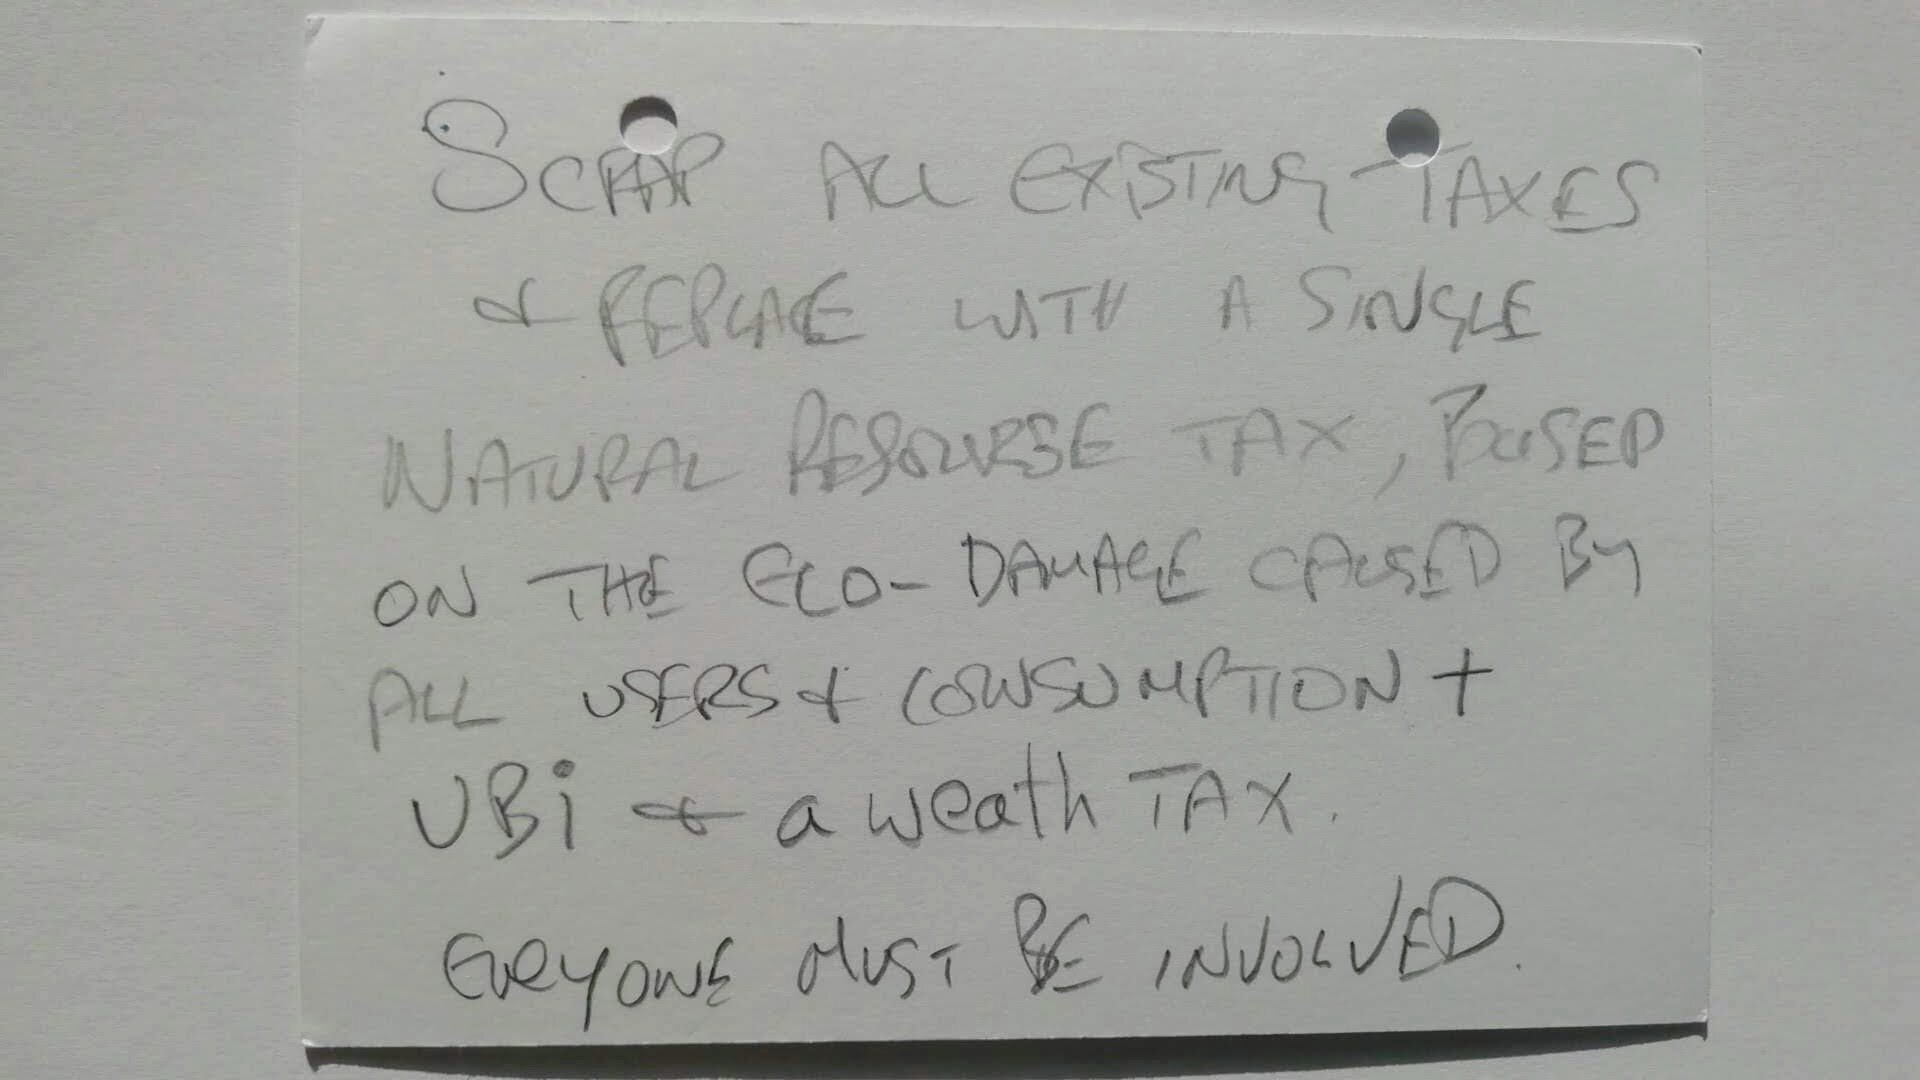 SCRAP ALL EXISTING TAXES
& REPLACE WITH A SINGLE
NATURAL RESOURSE TAX, BASED
ON THE ECO-DAMAGE CAUSED BY
ALL USERS & CONSUMPTION +
UBi & a weath TAX.
EVERYONE MUST BE INVOLVED.